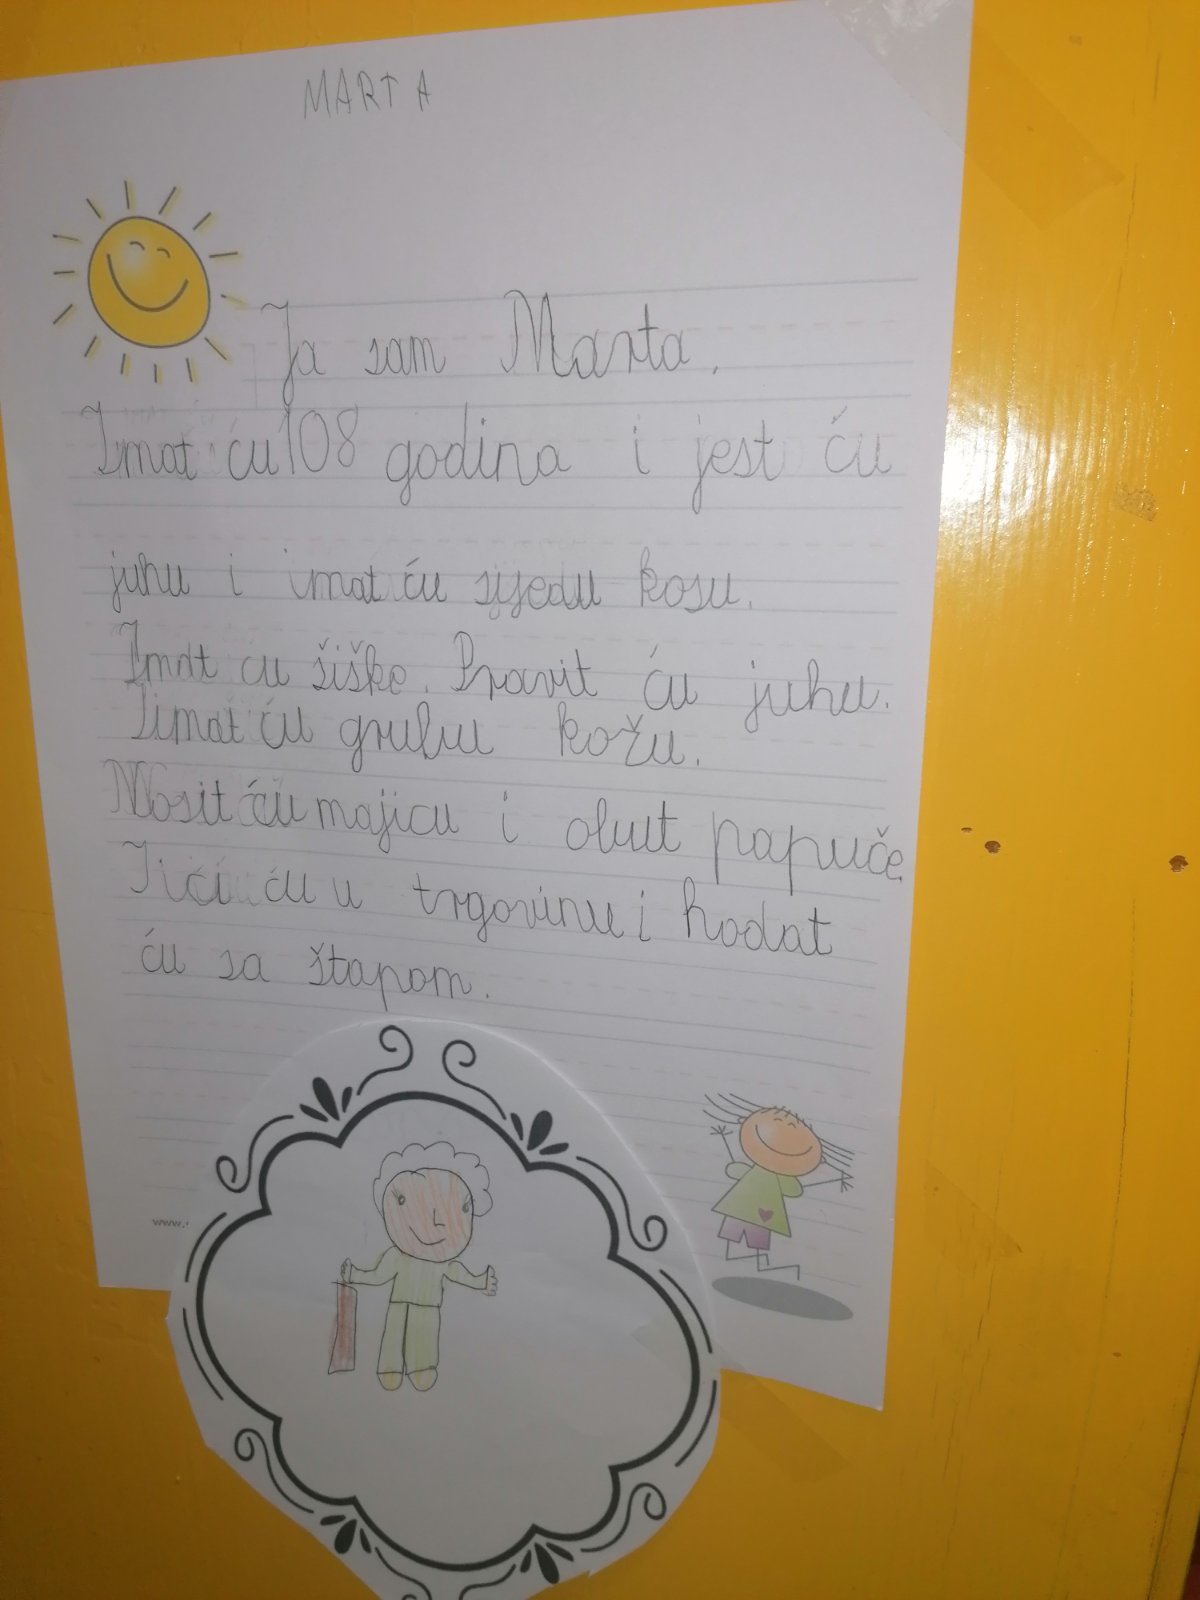 MARTA
Ja sam Marta.
Imat ću 108 godina i jest ću
juhu i imat ću sijedu kosu.
Imat ću šiške. Pravit ću juhu.
Imat ću grubu kožu.
Nosit ću majicu i obut papuče
Ići ću u trgovinu i hodat
ću sa štapom.
www.